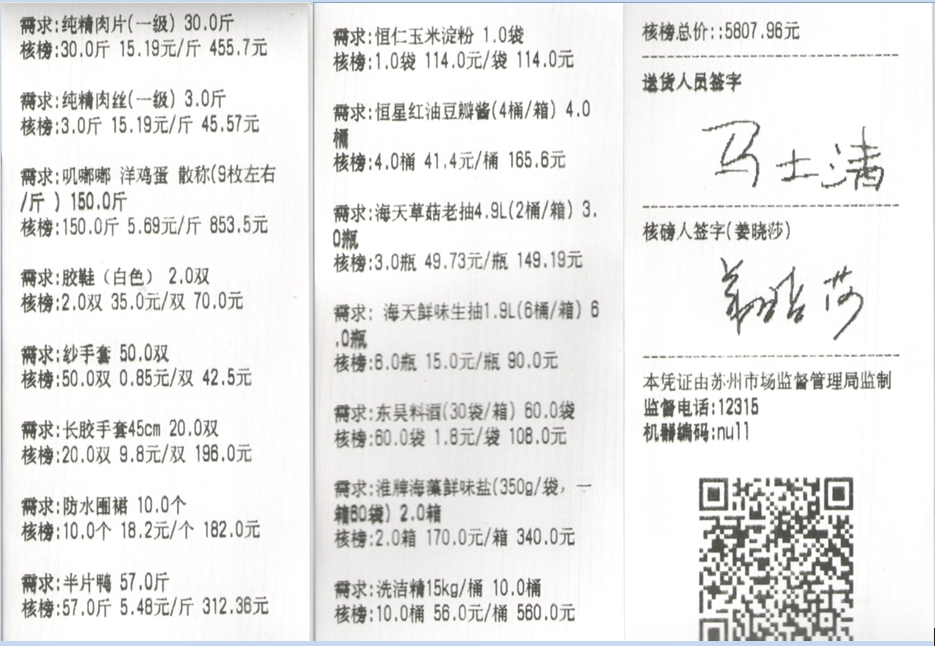 需求:纯精肉片(一级) 30.0斤
核榜:30.0斤 15.19元/斤 455.7元
需求:纯精肉丝(一级) 3.0斤
核榜:3.0斤 15.19元/斤 45.57元
需求:叽嘟嘟 洋鸡蛋 散称(9枚左右
/斤 ) 150.0斤
核榜:150.0斤 5.69元/斤 853.5元
需求:胶鞋（白色） 2.0双
核榜:2.0双 35.0元/双 70.0元
需求:纱手套 50.0双
核榜:50.0双 0.85元/双 42.5元
需求:长胶手套45cm 20.0双
核榜:20.0双 9.8元/双 196.0元
需求:防水围裙 10.0个
核榜:10.0个 18.2元/个 182.0元
需求:半片鸭 57.0斤
核榜:57.0斤 5.48元/斤 312.36元
需求:恒仁玉米淀粉 1.0袋
核榜:1.0袋 114.0元/袋 114.0元
需求:恒星红油豆瓣酱(4桶/箱) 4.0
桶
核榜:4.0桶 41.4元/桶 165.6元
需求:海天草菇老抽4.9L(2桶/箱) 3.
0瓶
核榜:3.0瓶 49.73元/瓶 149.19元
需求: 海天鲜味生抽1.9L(6桶/箱) 6
.0瓶
核榜:6.0瓶 15.0元/瓶 90.0元
需求:东吴料酒(30袋/箱) 60.0袋
核榜:60.0袋 1.8元/袋 108.0元
需求:淮牌海藻鲜味盐(350g/袋，一
箱60袋) 2.0箱
核榜:2.0箱 170.0元/箱 340.0元
需求:洗洁精15kg/桶 10.0桶
核榜:10.0桶 56.0元/桶 560.0元
核榜总价::5807.96元
送货人员签字
马士满
核磅人签字(姜晓莎)
姜晓莎
本凭证由苏州市场监督管理局监制
监督电话:12315
机器编码:null